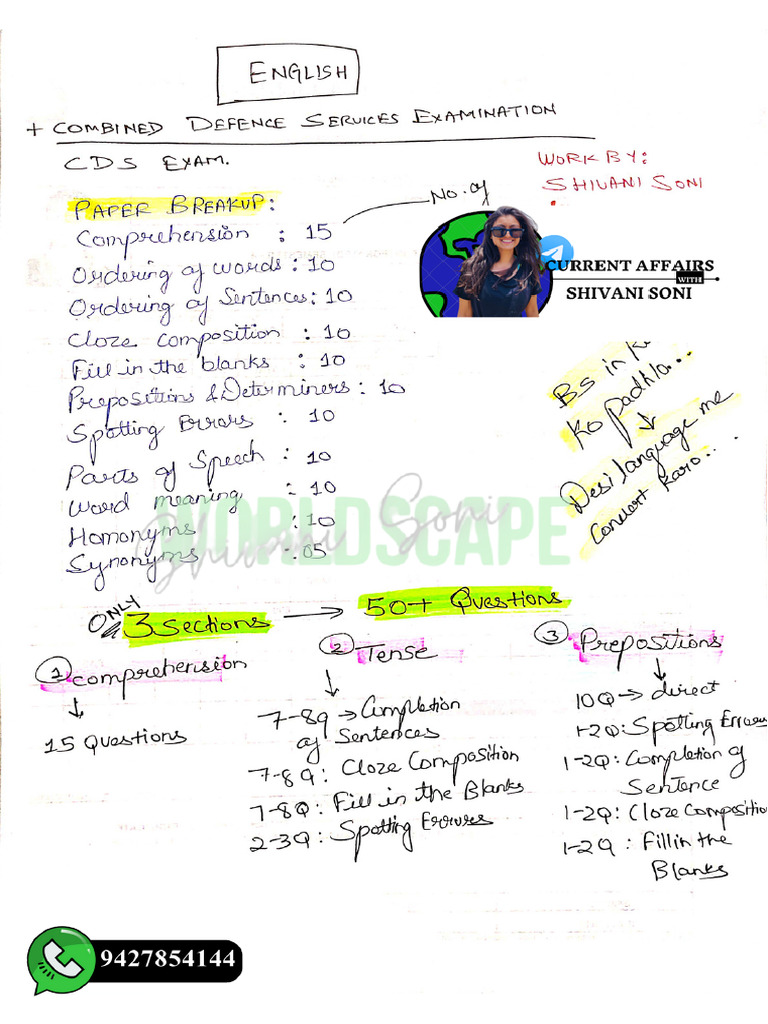 ENGLISH
+ COMBINED DEFENCE SERVICES EXAMINATION
CDS EXAM.
WORK BY:
SHIVANI SONI
No. of
PAPER BREAKUP:
Comprehension : 15
Ordering of words : 10
Ordering of Sentences : 10
Cloze composition : 10
Fill in the blanks : 10
Prepositions & Determiners : 10
Spotting Errors : 10
Parts of Speech : 10
Word meaning : 10
Homonyms : 10
Synonyms : 05
CURRENT AFFAIRS
WITH
SHIVANI SONI
Bs in
Ko padhlo...
Desi language me
Convert Karo...
WORLDSCAPE
Shivani Soni
ONLY 3 Sections → 50+ Questions
1 Comprehension
↓
15 Questions
2 Tense
↓
7-8Q → Completion
of Sentences
7-8Q : Cloze Composition
7-8Q : Fill in the Blanks
2-3Q : Spotting Errors
3 Prepositions
↓
10Q → direct
1-2Q : Spotting Errors
1-2Q : Completion of
Sentence
1-2Q : Cloze Compositio
1-2Q : Fill in the
Blanks
9427854144